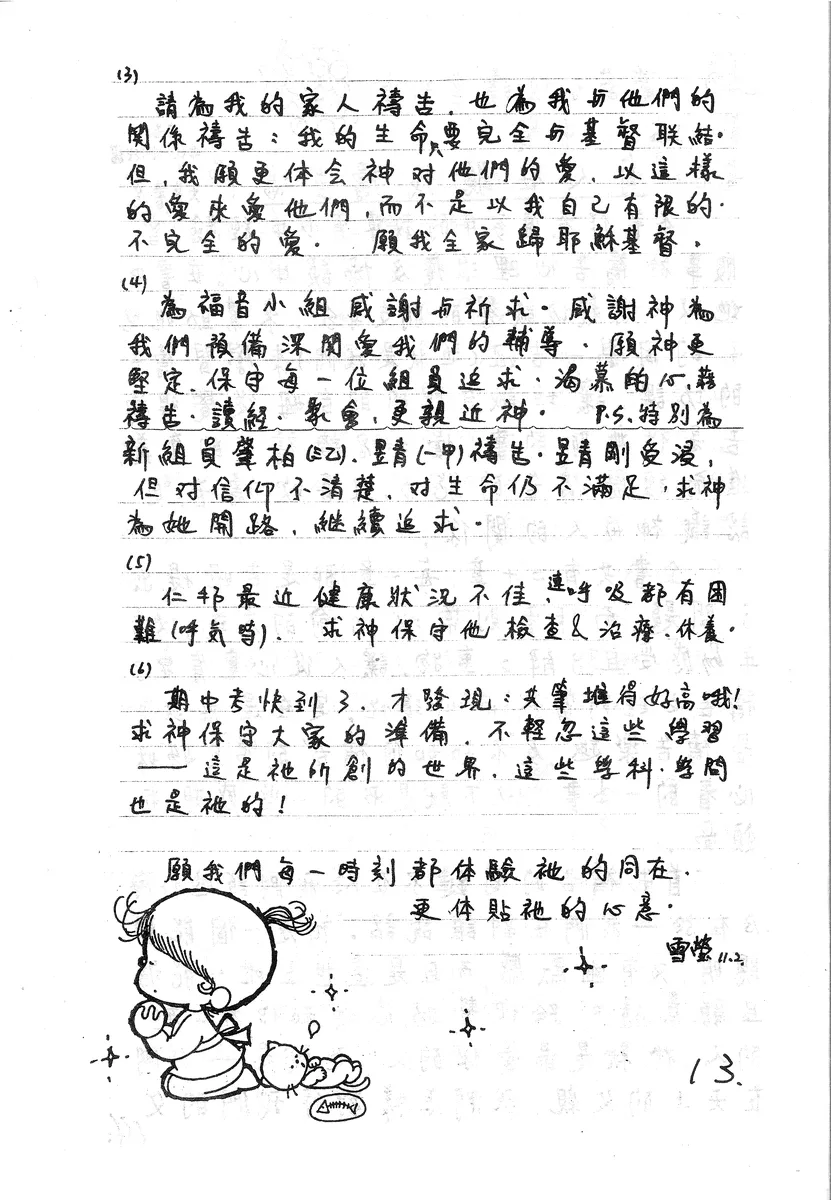 (3)
請為我的家人禱告．也為我与他們的
関係禱告：我的生命只要完全与基督联結．
但，我願更体会神对他們的愛．以這樣
的愛來愛他們，而不是以我自己有限的．
不完全的愛．　願我全家歸耶穌基督．
(4)
為福音小組感謝与祈求．感謝神為
我們預備深関愛我們的輔導．願神更
堅定．保守每一位組員追求．渴慕的心．藉
禱告．讀経．聚會，更親近神．　P.S.特別為
新組員肇柏(三乙)．昱青(一甲)禱告．昱青剛受浸，
但对信仰不清楚．对生命仍不滿足，求神
為她開路．継續追求．
(5)
仁邦最近健康狀況不佳，連呼吸都有困
難(呼気時)．　求神保守他檢查&治療．休養．
(6)
期中考快到了．才發現：共筆堆得好高哦！
求神保守大家的準備．不輕忽這些學習
——這是祂所創的世界．這些學科．學問
也是祂的！
願我們每一時刻都体驗祂的同在．
更体貼祂的心意．
雪瑩 11.2.
13.